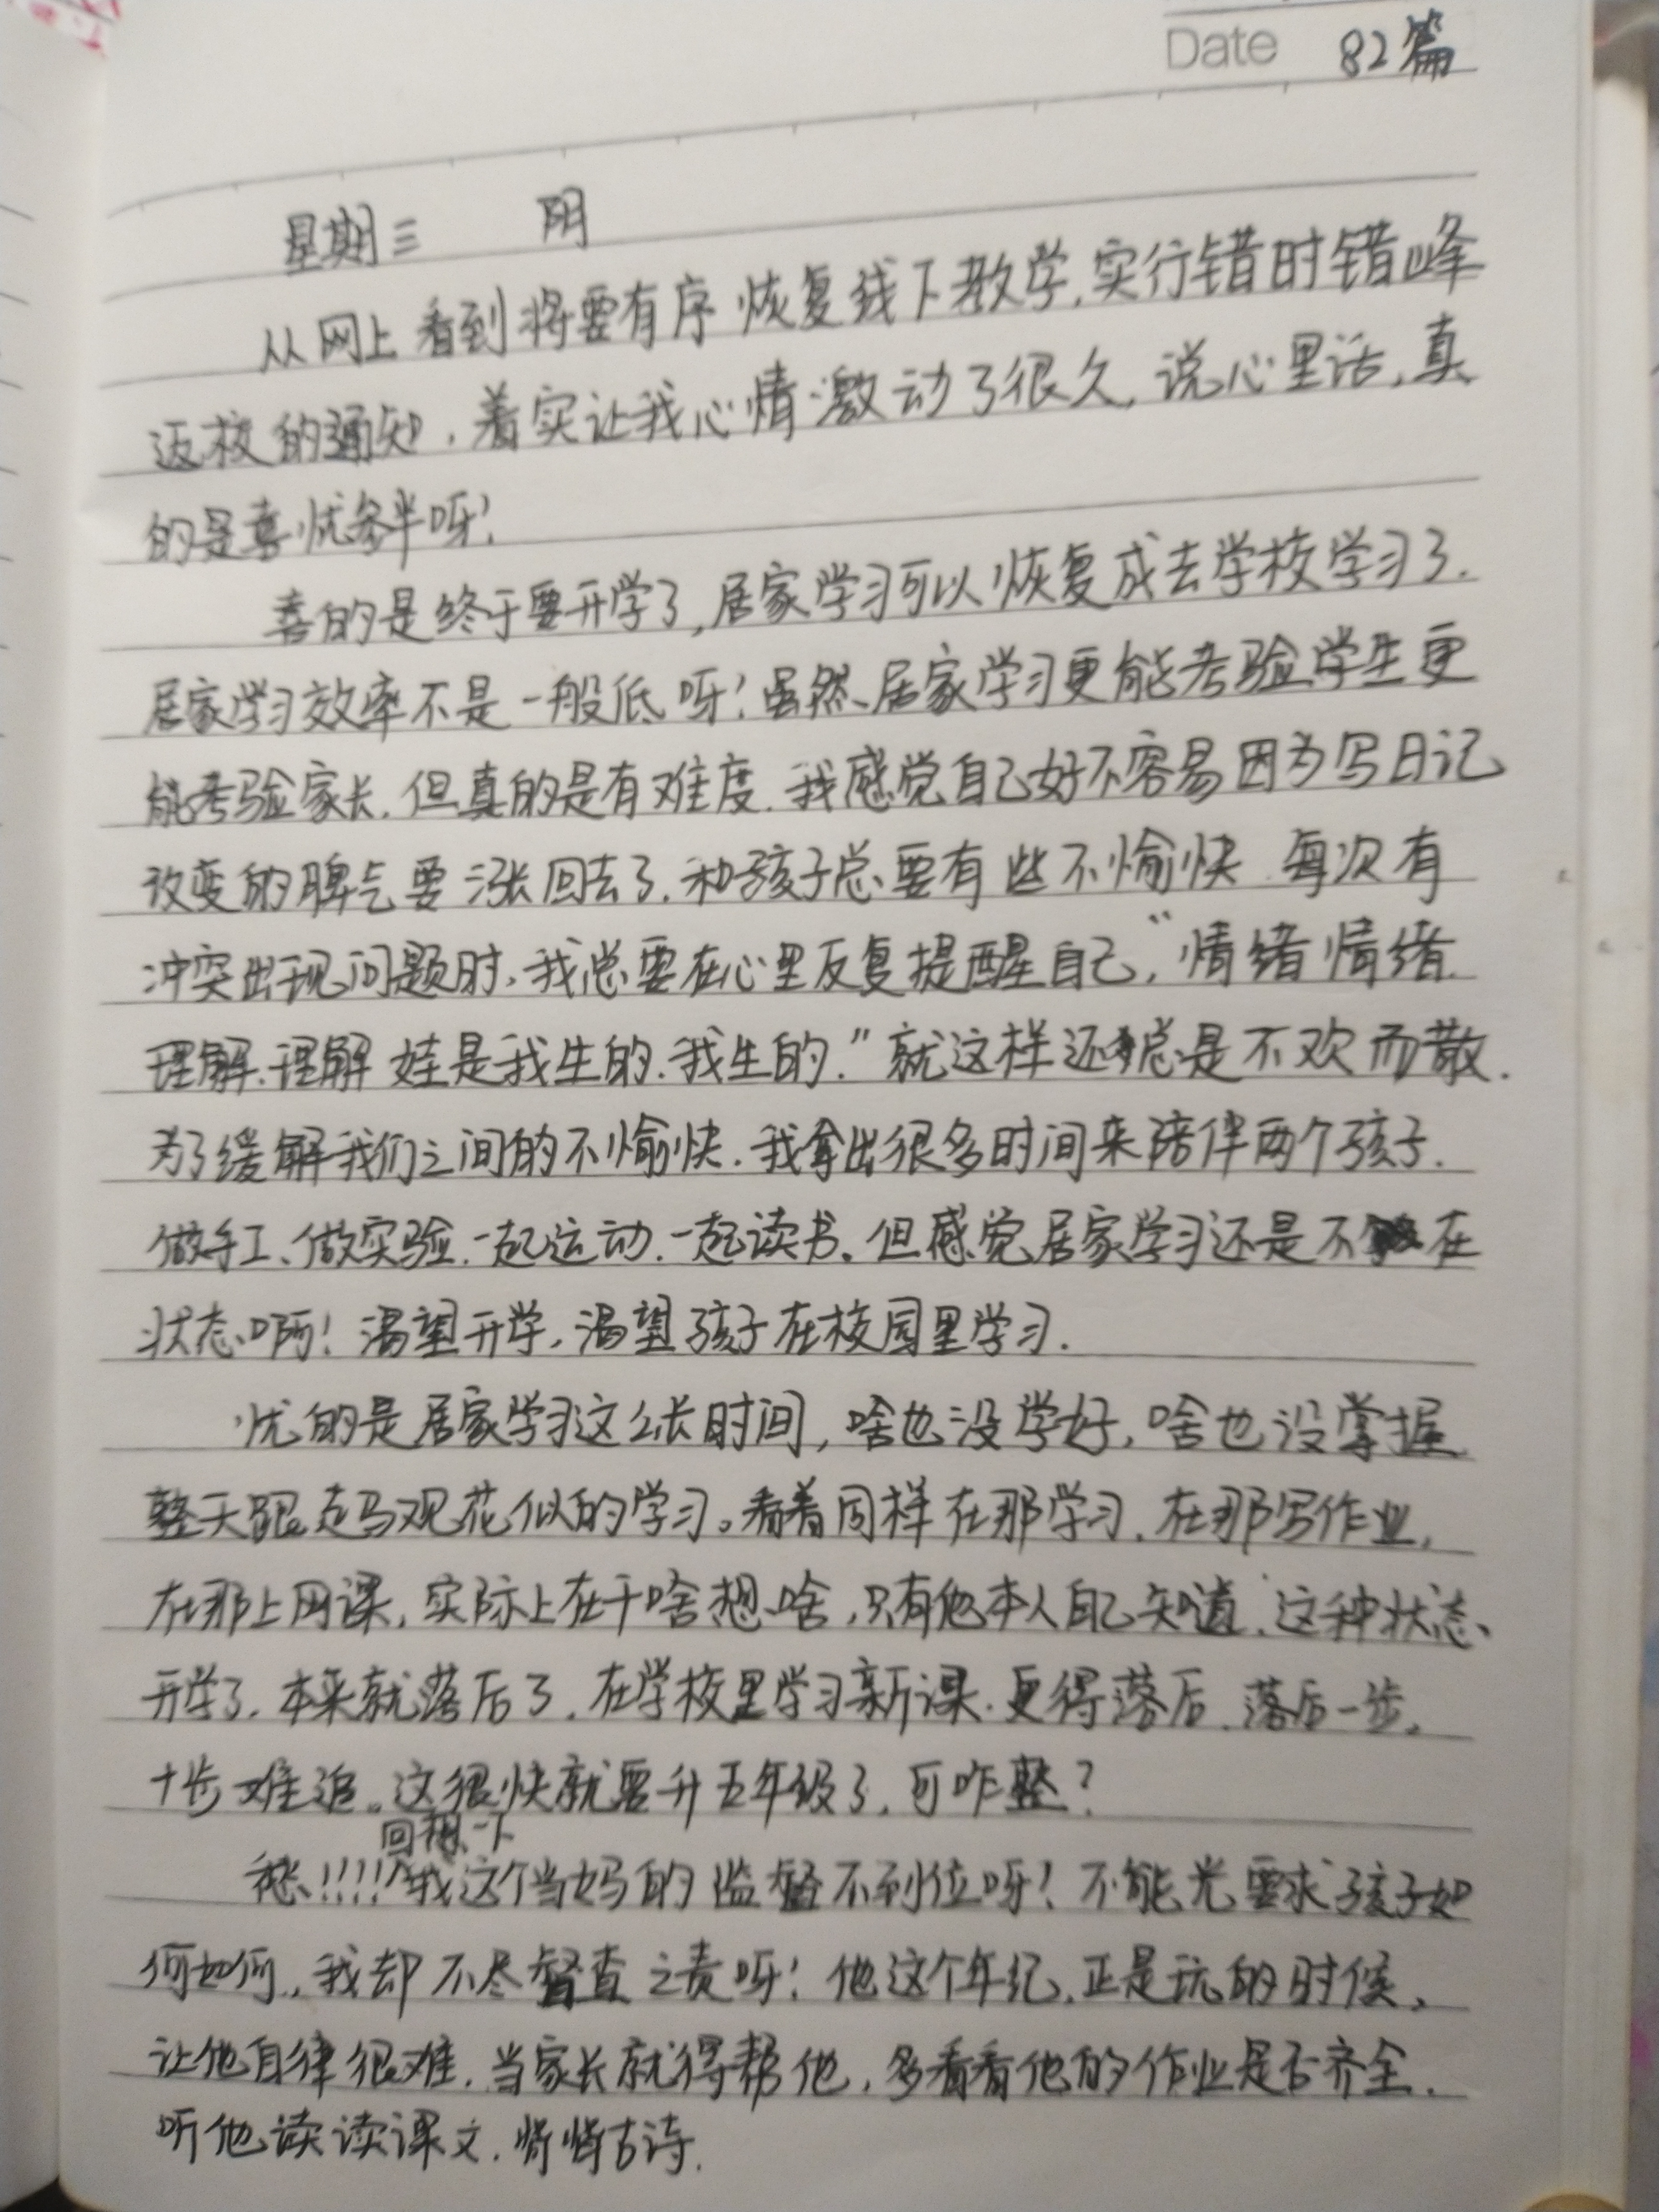 Date 82篇
星期三 阴
从网上看到将要有序恢复线下教学,实行错时错峰
返校的通知,着实让我心情激动了很久,说心里话,真
的是喜忧参半呀!
喜的是终于要开学了,居家学习可以恢复成去学校学习了.
居家学习效率不是一般低呀!虽然居家学习更能考验学生更
能考验家长.但真的是有难度.我感觉自己好不容易因为写日记
改变的脾气要涨回去了.和孩子总要有些不愉快.每次有
冲突出现问题时,我总要在心里反复提醒自己,“情绪情绪.
理解.理解 娃是我生的.我生的.”就这样还总是不欢而散.
为了缓解我们之间的不愉快.我拿出很多时间来陪伴两个孩子.
做手工、做实验.一起运动.一起读书.但感觉居家学习还是不在
状态啊!渴望开学,渴望孩子在校园里学习.
忧的是居家学习这么长时间,啥也没学好,啥也没掌握
整天跟走马观花似的学习。看着同样在那学习.在那写作业,
在那上网课,实际上在干啥想啥,只有他本人自己知道.这种状态、
开学了.本来就落后了.在学校里学习新课.更得落后.落后一步,
十步难追。这很快就要升五年级了,可咋整?
回想一下
愁!!!!我这个当妈的监督不到位呀!不能光要求孩子如
何如何,我却不尽督查之责呀!他这个年纪.正是玩的时候,
让他自律很难.当家长就得帮他,多看看他的作业是否齐全.
听他读读课文.背背古诗.